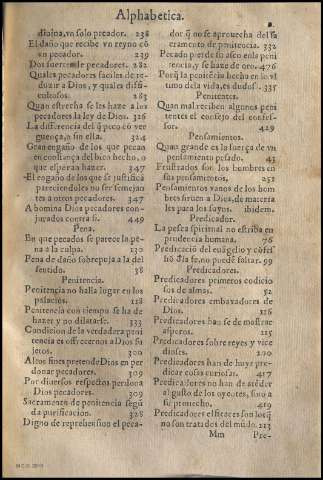 Alphabetica.
diuina, vn solo pecador. 238
El daño que recibe vn reyno cō
vn pecador. 239
Dos suertes de pecadores. 282
Quales pecadores faciles de re-
duzir a Dios, y quales dificu-
cultosos. 283
Quan estrecha se les haze a los
pecadores la ley de Dios. 326
La differencia del q̃ peco cō ver
guença, o sin ella. 324
Gran engaño de los que pecan
en confiança del bien hecho, o
que esperan hazer. 347
El engaño de los que se justificā
pareciendoles no ser semejan
tes a otros pecadores. 347
A bomina Dios pecadores con-
jurados contra si. 449
Pena.
En que pecados se parece la pe-
na a la culpa. 330
Pena de daño sobrepuja a la del
sentido. 38
Penitencia.
Penitencia no halla lugar en los
palacios. 118
Penitencia con tiempo se ha de
hazer y no dilatarse. 333
Condicion de la verdadera peni
tencia es offrecernos a Dios su
jetos. 300
A cuos fines pretende Dios en per
donar pecadores. 309
Por diuersos respectos perdona
Dios pecadores. 309
Sacramento de penitencia segū
da purificacion. 328
Digno de reprehension el peca-
dor q̃ no se aprouecha del sa
cramento de penitencia. 332
Pecado pierde su asco enla peni
tencia, y se haze de oro. 476
Porq̃ la penitēcia hecha en lo vl
timo dela vida, es dudosa. 335
Penitentes.
Quan mal reciben algunos peni
tentes el consejo del confes-
sor. 429
Pensamientos.
Quan grande es la fuerça de vn
pensamiento pesado. 43
Frustrados son los hombres en
sus pensamientos. 252
Pensamientos vanos de los hom
bres siruen a Dios, de materia
les para los suyos. ibidem.
Predicador.
La pesca spiritual no estriba en
prudencia humana. 76
Predicaciō del euāgelio y cōfes
siō dla fe, no puede faltar. 99
Predicadores.
Predicadores primeros codicio
sos de almas. 32
Predicadores embaxadores de
Dios. 116
Predicadores han se de mostrar
asperos. 125
Predicadores sobre reyes y vice
dioses. 200
Predicadores han de huyr pre-
dicar cosas curiosas. 417
Predicadores no han de atēder
al gusto de los oyentes, sino a
su prouecho. 419
Predicadores eficaces son los q̃
no son tratados del mūdo. 213
Mm Pre-